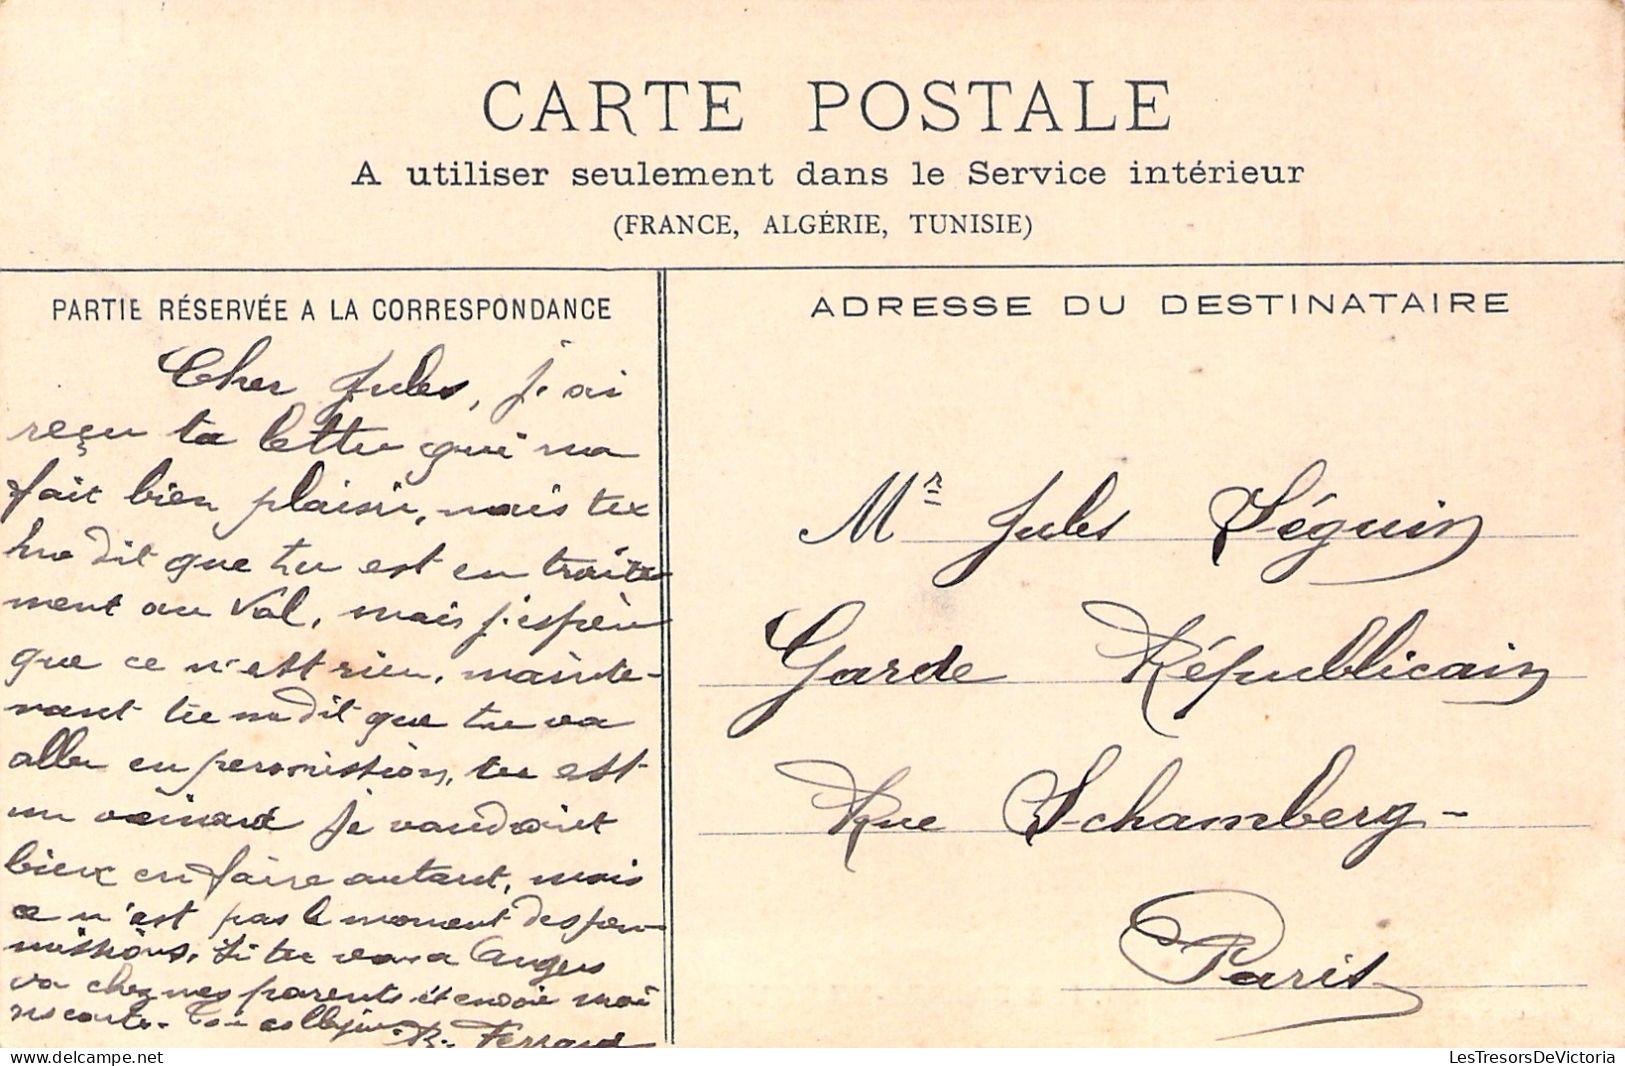 CARTE POSTALE
A utiliser seulement dans le Service intérieur
(FRANCE, ALGÉRIE, TUNISIE)
PARTIE RÉSERVÉE A LA CORRESPONDANCE
Cher Jules, j'ai
reçu ta lettre qui ma
fait bien plaisir, mais tu
me dit que tu est en traite
ment au Val, mais j'espère
que ce n'est rien, mainte-
nant tu me dit que tu va
aller en permission, tu est
un veinard je voudrait
bien en faire autant, mais
ce n'est pas le moment des per-
missions. Si tu vas a Angers
va chez mes parents et envoie moi
des cartes. Ton collègue
ADRESSE DU DESTINATAIRE
Mr Jules Séguin
Garde Républicain
Rue Schamberg-
Paris
LesTresorsDeVictoria - delcampe.net